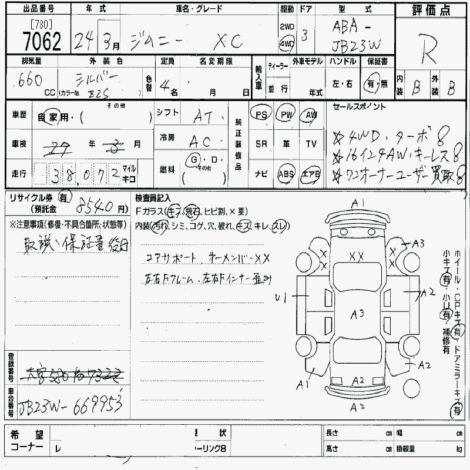 出品番号 年式 車名・グレード 駆動 ドア 型式 評価点
[780]
7062 24年3月 ジムニー XC 2WD 4WD 3 ABA-JB23W R
排気量 外装色 定員 名変期限 輸入車 ディーラー 外車モデル ハンドル 保証書 内装 外装
660 CC シルバー 色替 4名 月 日 並行 年 左・右 有・無 B B
(カラーNo. Z2S)
車歴 自家用・(その他) シフト AT 純正装備品 PS PW AW セールスポイント
車検 年 月 冷房 AC SR 革 TV ☆4WD・ターボ8
走行 38,072 マイル キロ 燃料 G・D (その他) ナビ ABS エアB ☆16インチAW・キーレス8
☆ワンオーナーユーザー買取8
リサイクル券 有 (預託金) 8540円 検査員記入
Fガラス(キズ、飛石、ヒビ割、×要)
※注意事項(修復・不具合箇所・状態等) 内装(汚れ、シミ、コゲ、穴、破れ、キズ、キレ、スレ)
取説、保証書
コアサポート、 ××
左右Fフレーム、左右Fインナー
A1
A3
X X
X X
U1 A3 A2
A1 A2 A2
A2
ホイール・CPキズ(有)・ドアミラーキズ(有)
小キズ(有)・小凹(有)・補修有
登録番号
車台番号 JB23W-669953
希望コーナー 状・
レ ーリング8
長さ cm 幅 cm
高さ cm 積載量 kg